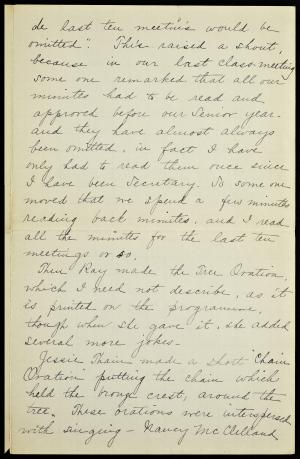 de last ten meetin's would be
omitted". This raised a shout,
because in our last class-meeting
some one remarked that all our
minutes had to be read and
approved before our Senior year.
and they have almost always
been omitted, in fact I have
only had to read them once since
I have been Secretary. So some one
moved that we spend a few minutes
reading back minutes, and I read
all the minutes for the last ten
meetings or so.
Then Ray made the Tree Oration,
which I need not describe, as it
is printed on the programme,
though when she gave it, she added
several more jokes-
Jessie Thain made a short "Chain
Oration" putting the chain which
held the crest, around the
tree. These orations were interspersed
with singing - Nancy McClelland